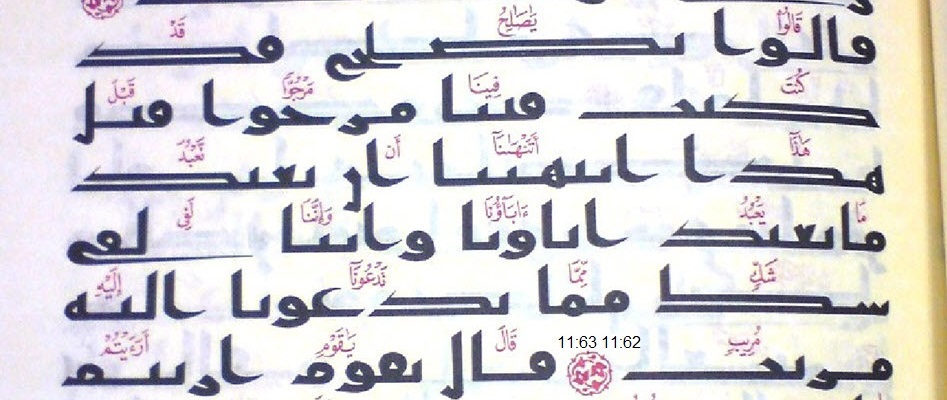 قَالُوا۟ يَٰصَٰلِحُ قَدْ
قالوا يصلح قد
كُنتَ فِينَا مَرْجُوًّا قَبْلَ
كنت فينا مرجوا قبل
هَٰذَآ أَتَنْهَىٰنَآ أَن نَّعْبُدَ
هذا اتنهينا ان نعبد
مَا يَعْبُدُ ءَابَآؤُنَا وَإِنَّنَا لَفِى
ما يعبد اباونا واننا لفى
شَكٍّ مِّمَّا تَدْعُونَآ إِلَيْهِ
شك مما تدعونا اليه
مُرِيبٍ 11:63 11:62 قَالَ يَٰقَوْمِ أَرَءَيْتُمْ
مريب قال يقوم اريتم